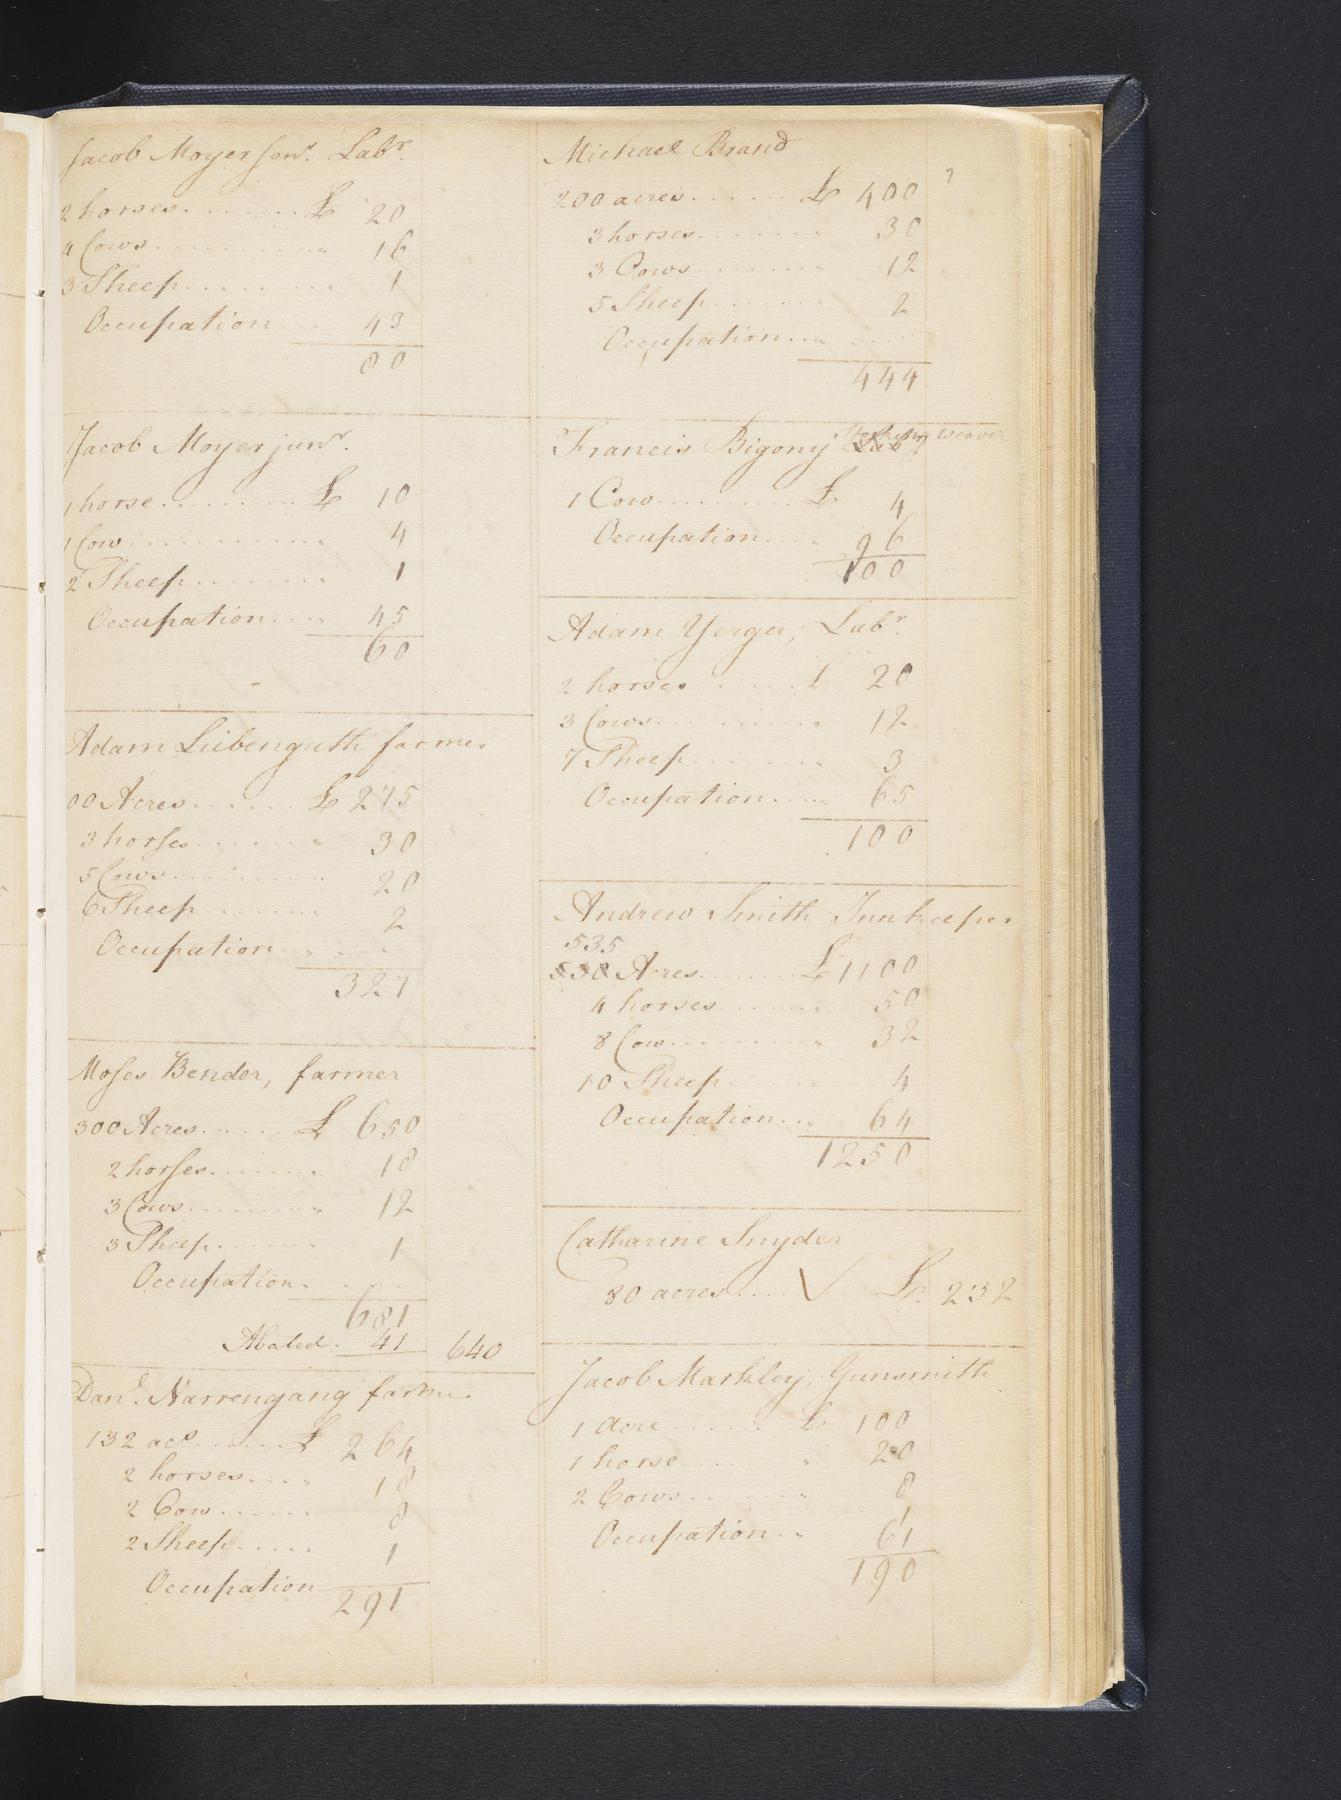 Jacob Moyer senr. Labr.
2 horses £ 20
4 Cows " 16
3 Sheep 1
Occupation 43
80
Jacob Moyer junr.
1 horse £ 10
1 Cow " 4
2 Sheep " 1
Occupation 45
60
Adam Liebenguth farmer
00 Acres £ 275
3 horses " 30
5 Cows 20
6 Sheep 2
Occupation
327
Moses Bender, farmer
300 Acres £ 650
2 horses " 18
3 Cows " 12
3 Sheep " 1
Occupation
681
Abated 41 640
Danl. Narrengang farmer
132 acs £ 264
2 horses " 18
2 Cow 8
2 Sheep 1
Occupation
291
Michael Brand
200 acres £ 400 ?
3 horses 30
3 Cows " 12
5 Sheep " 2
Occupation
444
Francis Bigony Labr Stocking Weaver
1 Cow £ 4
Occupation 96
100
Adam Yerger, Labr.
2 horses £ 20
3 Cows " 12
7 Sheep " 3
Occupation 65
100
Andrew Smith Innkeeper
535
530 Acres £ 1100
4 horses " 50
8 Cow " 32
10 Sheep 4
Occupation 64
1250
Catharine Snyder
80 acres £ 232
Jacob Markley, Gunsmith
1 acre £ 100
1 horse " 20
2 Cows " 8
Occupation " 61
190